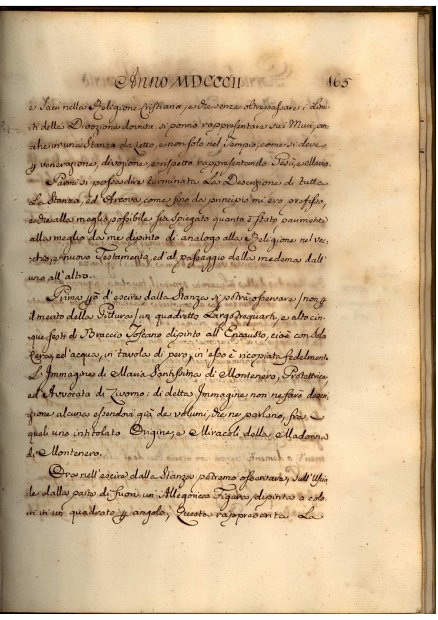 ANNO MDCCCII 165
e Sacri nella Religione Cristiana, e che senza oltrepassare i Limi-
ti della Divozione dovuta si ponno rappresentare sui Muri, an-
che in una Stanza da Letto, e non solo nel Tempio, come si deve
p venerazione, divozione, e rispetto rappresentando Gesù, e Maria.
Parmi si possa dire terminata La Descrizione di tutta
La Stanza, ed Arcova, come fino da principio mi ero prefisso,
e che alla meglio possibile ho spiegato quanto è stato parimente
alla meglio da me dipinto di analogo alla Religione nel vec-
chio, e nuovo Testamento, ed al passaggio della medema dall'
uno all'altro.
Prima però d'escire dalla Stanza si potrà osservare /non p
il merito della Pittura/ un quadretto Largo trequarti, e alto cin-
que sesti di Braccio Toscano dipinto all'Encausto, cioè con dolo
cera, ed acqua, in tavola di pero, in esso è ricopiata fedelmente
L'Immagine di Maria Santissima di Montenero, Protettrice
ed Avvocata di Livorno: di detta Immagine non ne farò descri-
zione alcuna essendovi già de volumi, che ne parlano, fra
quali uno intitolato Origine, e Miracoli della Madonna
di Montenero.
Ora nell'escire dalla Stanza, potremo osservare, sull'Usci-
le dalla parte di fuori un'Allegorica Figura, dipinta a colo-
ri in un quadrato p angolo, Questa rappresenta La